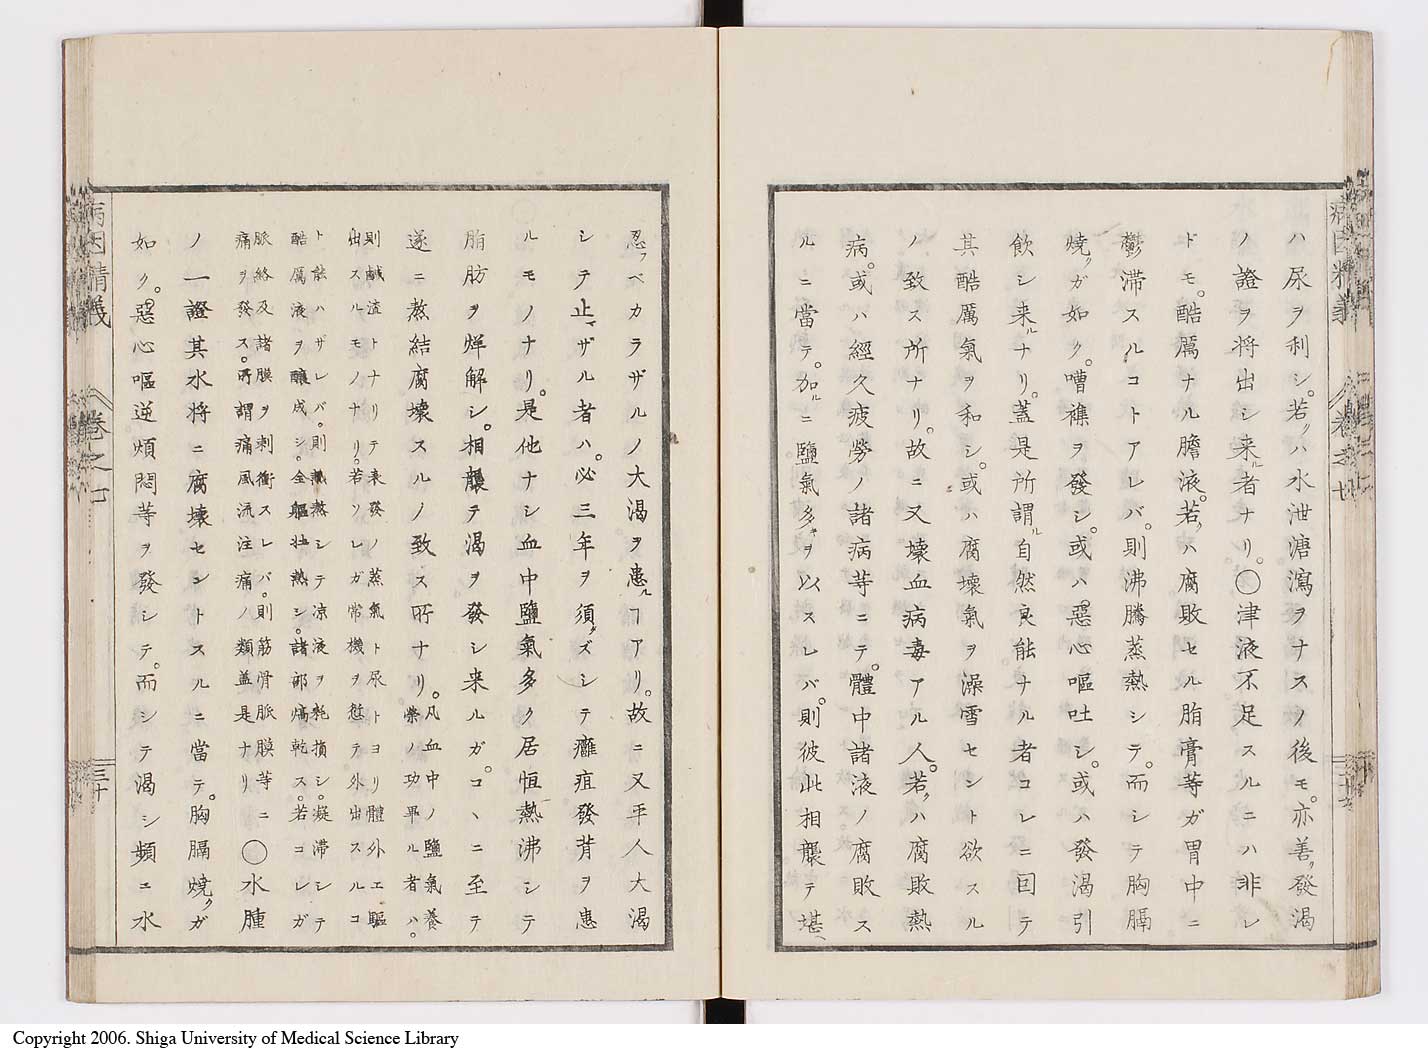 ハ尿ヲ利シ。若クハ水泄溏瀉ヲナスノ後モ。亦善ク發渴
ノ證ヲ將出シ来ル者ナリ。〇津液不足スルニハ非レ
ドモ。酷厲ナル膽液。若クハ腐敗セル脂膏等ガ胃中ニ
鬱滞スルコトアレバ。則沸騰蒸熱シテ。而シテ胸膈
燒クガ如ク。嘈襍ヲ發シ。或ハ惡心嘔吐シ。或ハ發渴引
飲シ来ルナリ。蓋是所謂ル自然良能ナル者コレニ回テ
其酷厲氣ヲ和シ。或ハ腐壞氣ヲ澡雪セント欲スル
ノ致ス所ナリ。故ニ又壞血病毒アル人。若クハ腐敗熱
病。或ハ經久疲勞ノ諸病等ニテ。體中諸液ノ腐敗ス
ルニ當テ。加ルニ鹽氣多キヲ以スレバ。則彼此相襲テ堪ヘ
忍ブベカラザルノ大渴ヲ患ルヿアリ。故ニ又平人大渴
シテ止マザル者ハ。必三年ヲ須タズシテ癰疽發背ヲ患
ルモノナリ。是他ナシ血中鹽氣多ク居恒熱沸シテ
脂肪ヲ烊解シ。相襲テ渴ヲ發シ来ルガ。コヽニ至テ
遂ニ熬結腐壞スルノ致ス所ナリ。凡血中ノ鹽氣養
榮ノ功畢ル者ハ。
則鹹渣トナリテ表發ノ蒸氣ト尿トヨリ體外エ驅
出スルモノナリ。若ソレガ常機ヲ愆テ外出スルコ
ト能ハザレバ。則熱蒸シテ涼液ヲ耗損シ。凝滞シテ
酷厲液ヲ釀成シ。全軀壮熱シ。諸部熇乾ス。若コレガ
脈絡及諸膜ヲ刺衝スレバ。則筋骨脈膜等ニ
痛ヲ發ス。所謂痛風流注痛ノ類蓋是ナリ
〇水腫
ノ一證其水將ニ腐壞セントスルニ當テ。胸膈燒クガ
如ク。惡心嘔逆煩悶等ヲ發シテ。而シテ渴シ頻ニ水
病因精義
卷之七
三十
Copyright 2006. Shiga University of Medical Science Library